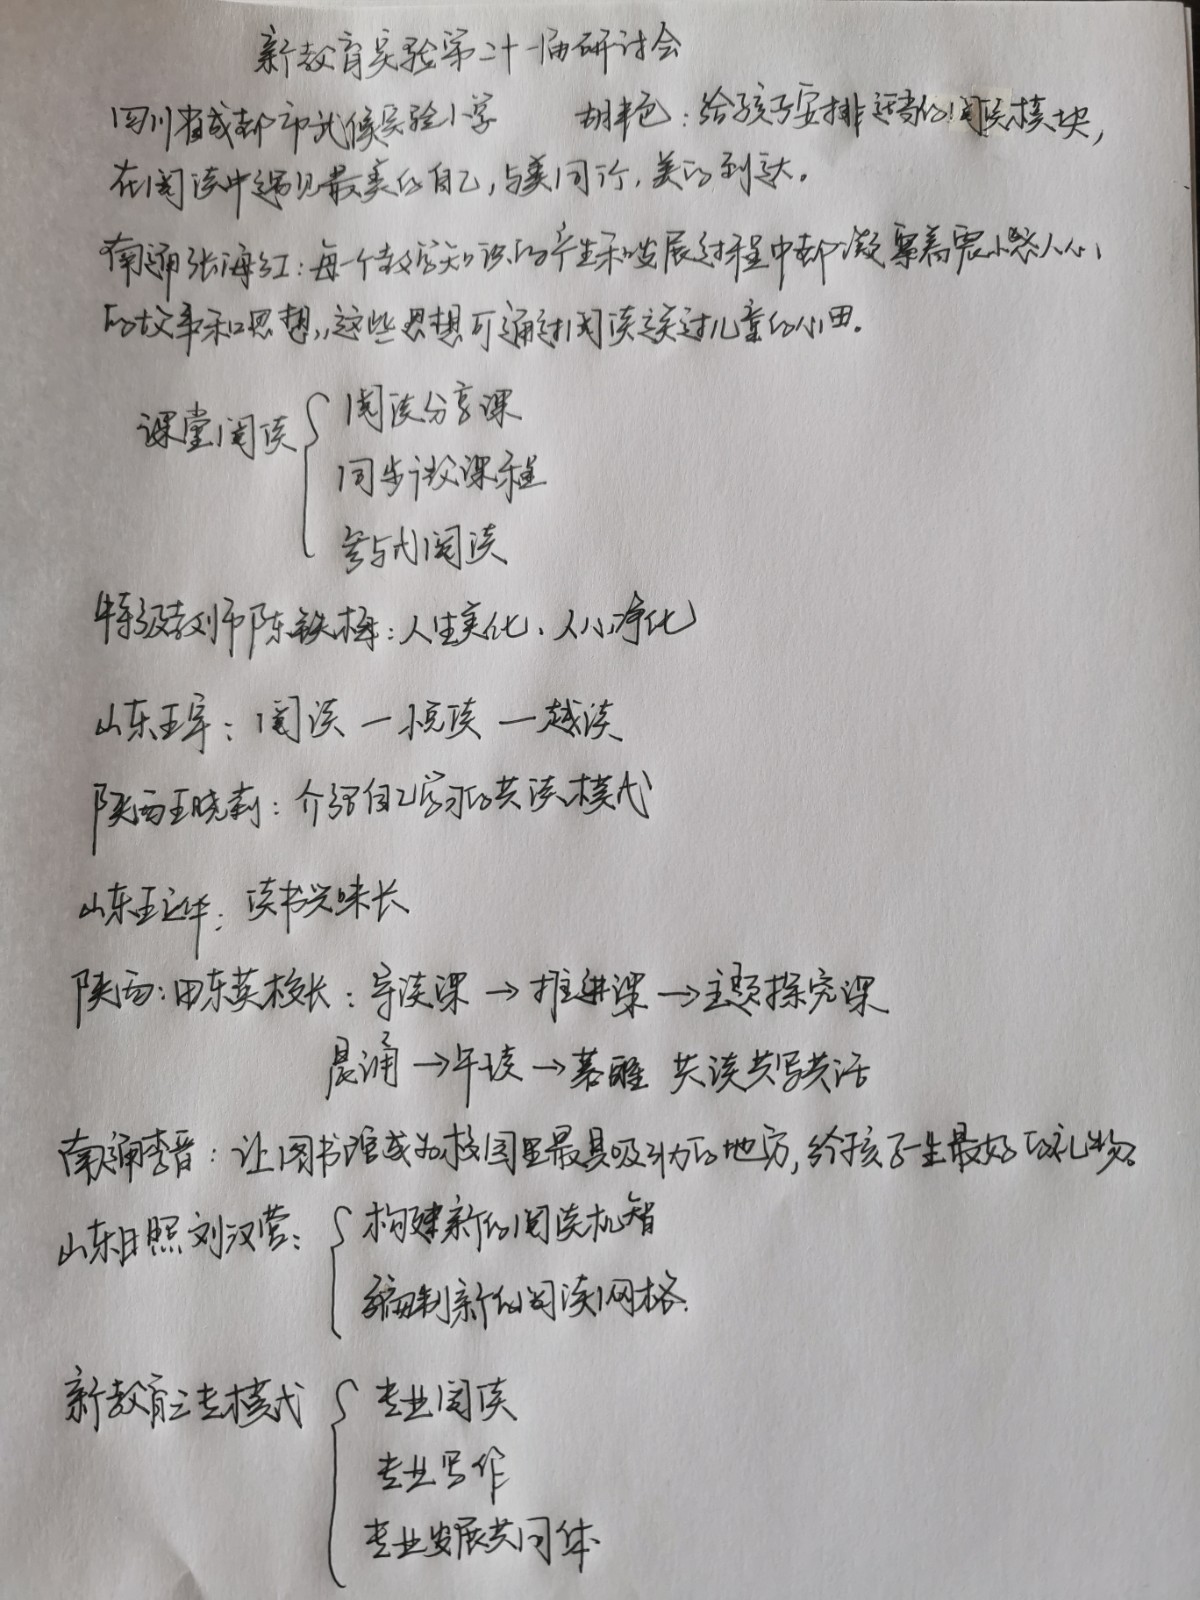 新教育实验第二十一届研讨会
四川省成都市武侯实验小学 胡艳色：给孩子安排适当的阅读模块，
在阅读中遇见最美的自己，与美同行，美的到达。
南通张海红：每一个数学知识的产生和发展过程中都凝聚着震撼人心
的故事和思想，这些思想可通过阅读走过儿童的心田。
课堂阅读 阅读分享课
同步微课程
参与式阅读
特级教师陈铁梅：人生美化、人心净化
山东王军：阅读一悦读一越读
陕西王晓莉：介绍自己学习的共读模式
山东王之华：读书兴味长
陕西：田东英校长：导读课→推进课→主题探究课
晨诵→午读→暮醒 共读共写共活
南通李晋：让图书馆成为校园里最具吸引力的地方，给孩子一生最好的礼物。
山东日照刘汉营： 构建新的阅读机智
编制新的阅读网格.
新教育三专模式 专业阅读
专业写作
专业发展共同体